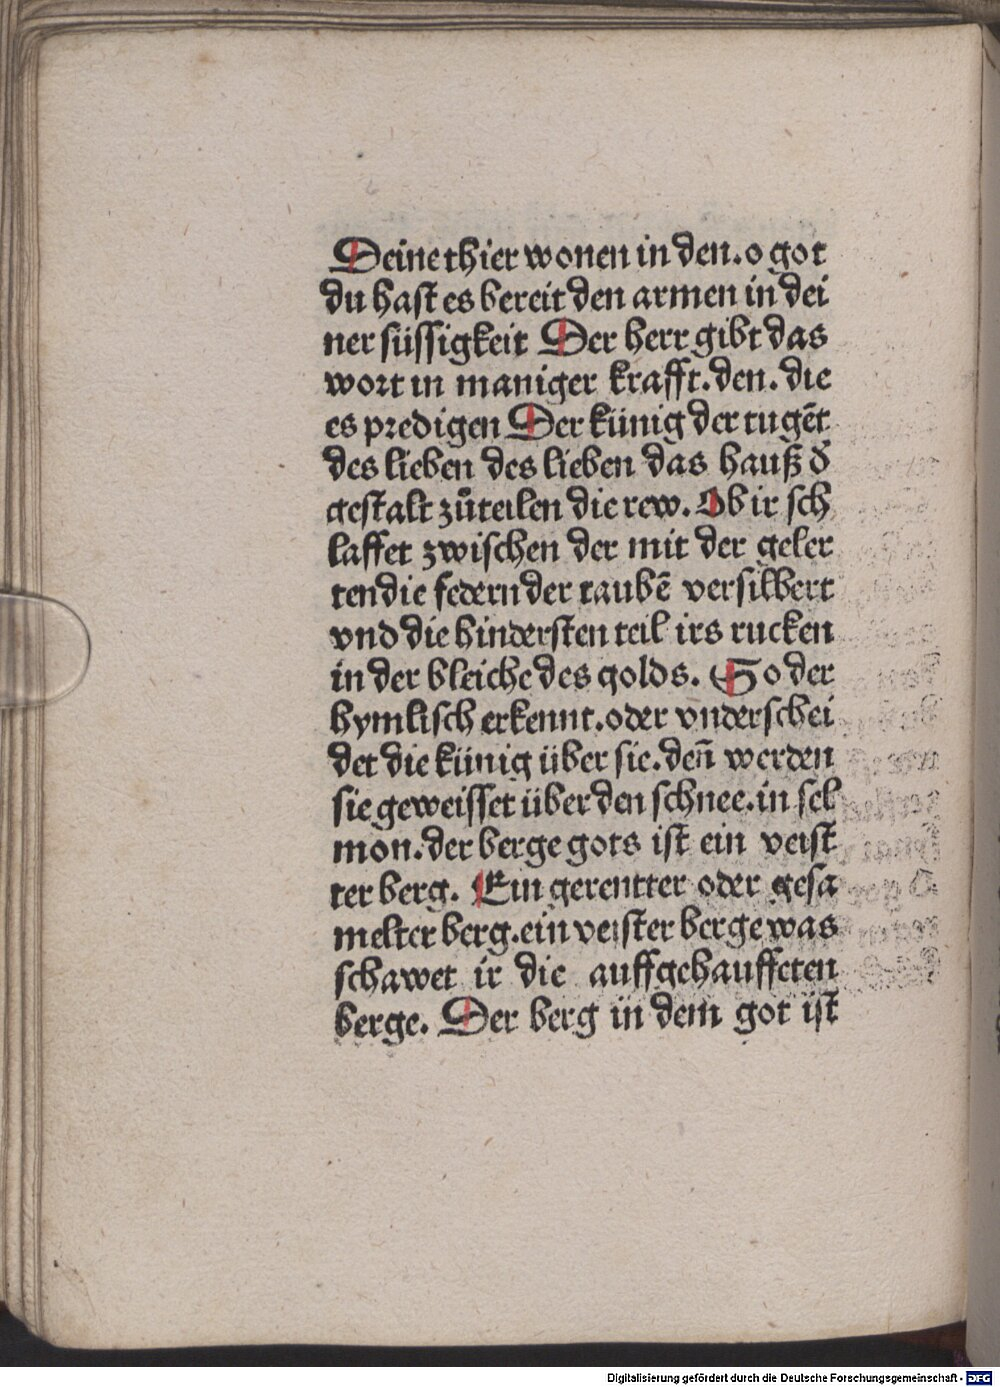 Deine thier wonen in den. o got
du hast es bereit den armen in dei
ner süssigkeit Der herr gibt das
wort in maniger krafft. den. die
es predigen Der künig der tugēt
des lieben des lieben das hauß d̕
gestalt zůteilen die rew. Ob ir sch
laffet zwischen der mit der geler
ten die federn der taubē versilbert
vnd die hindersten teil irs rucken
in der bleiche des golds. So der
hymlisch erkennt. oder vnderschei
det die künig über sie. den̄ werden
sie geweisset über den schnee. in sel
mon. der berge gots ist ein veist
ter berg. Ein gerentter oder gesa
melter berg. ein veister berge was
schawet ir die auffgehauffeten
berge. Der berg in dem got ist
Digitalisierung gefördert durch die Deutsche Forschungsgemeinschaft - DFG